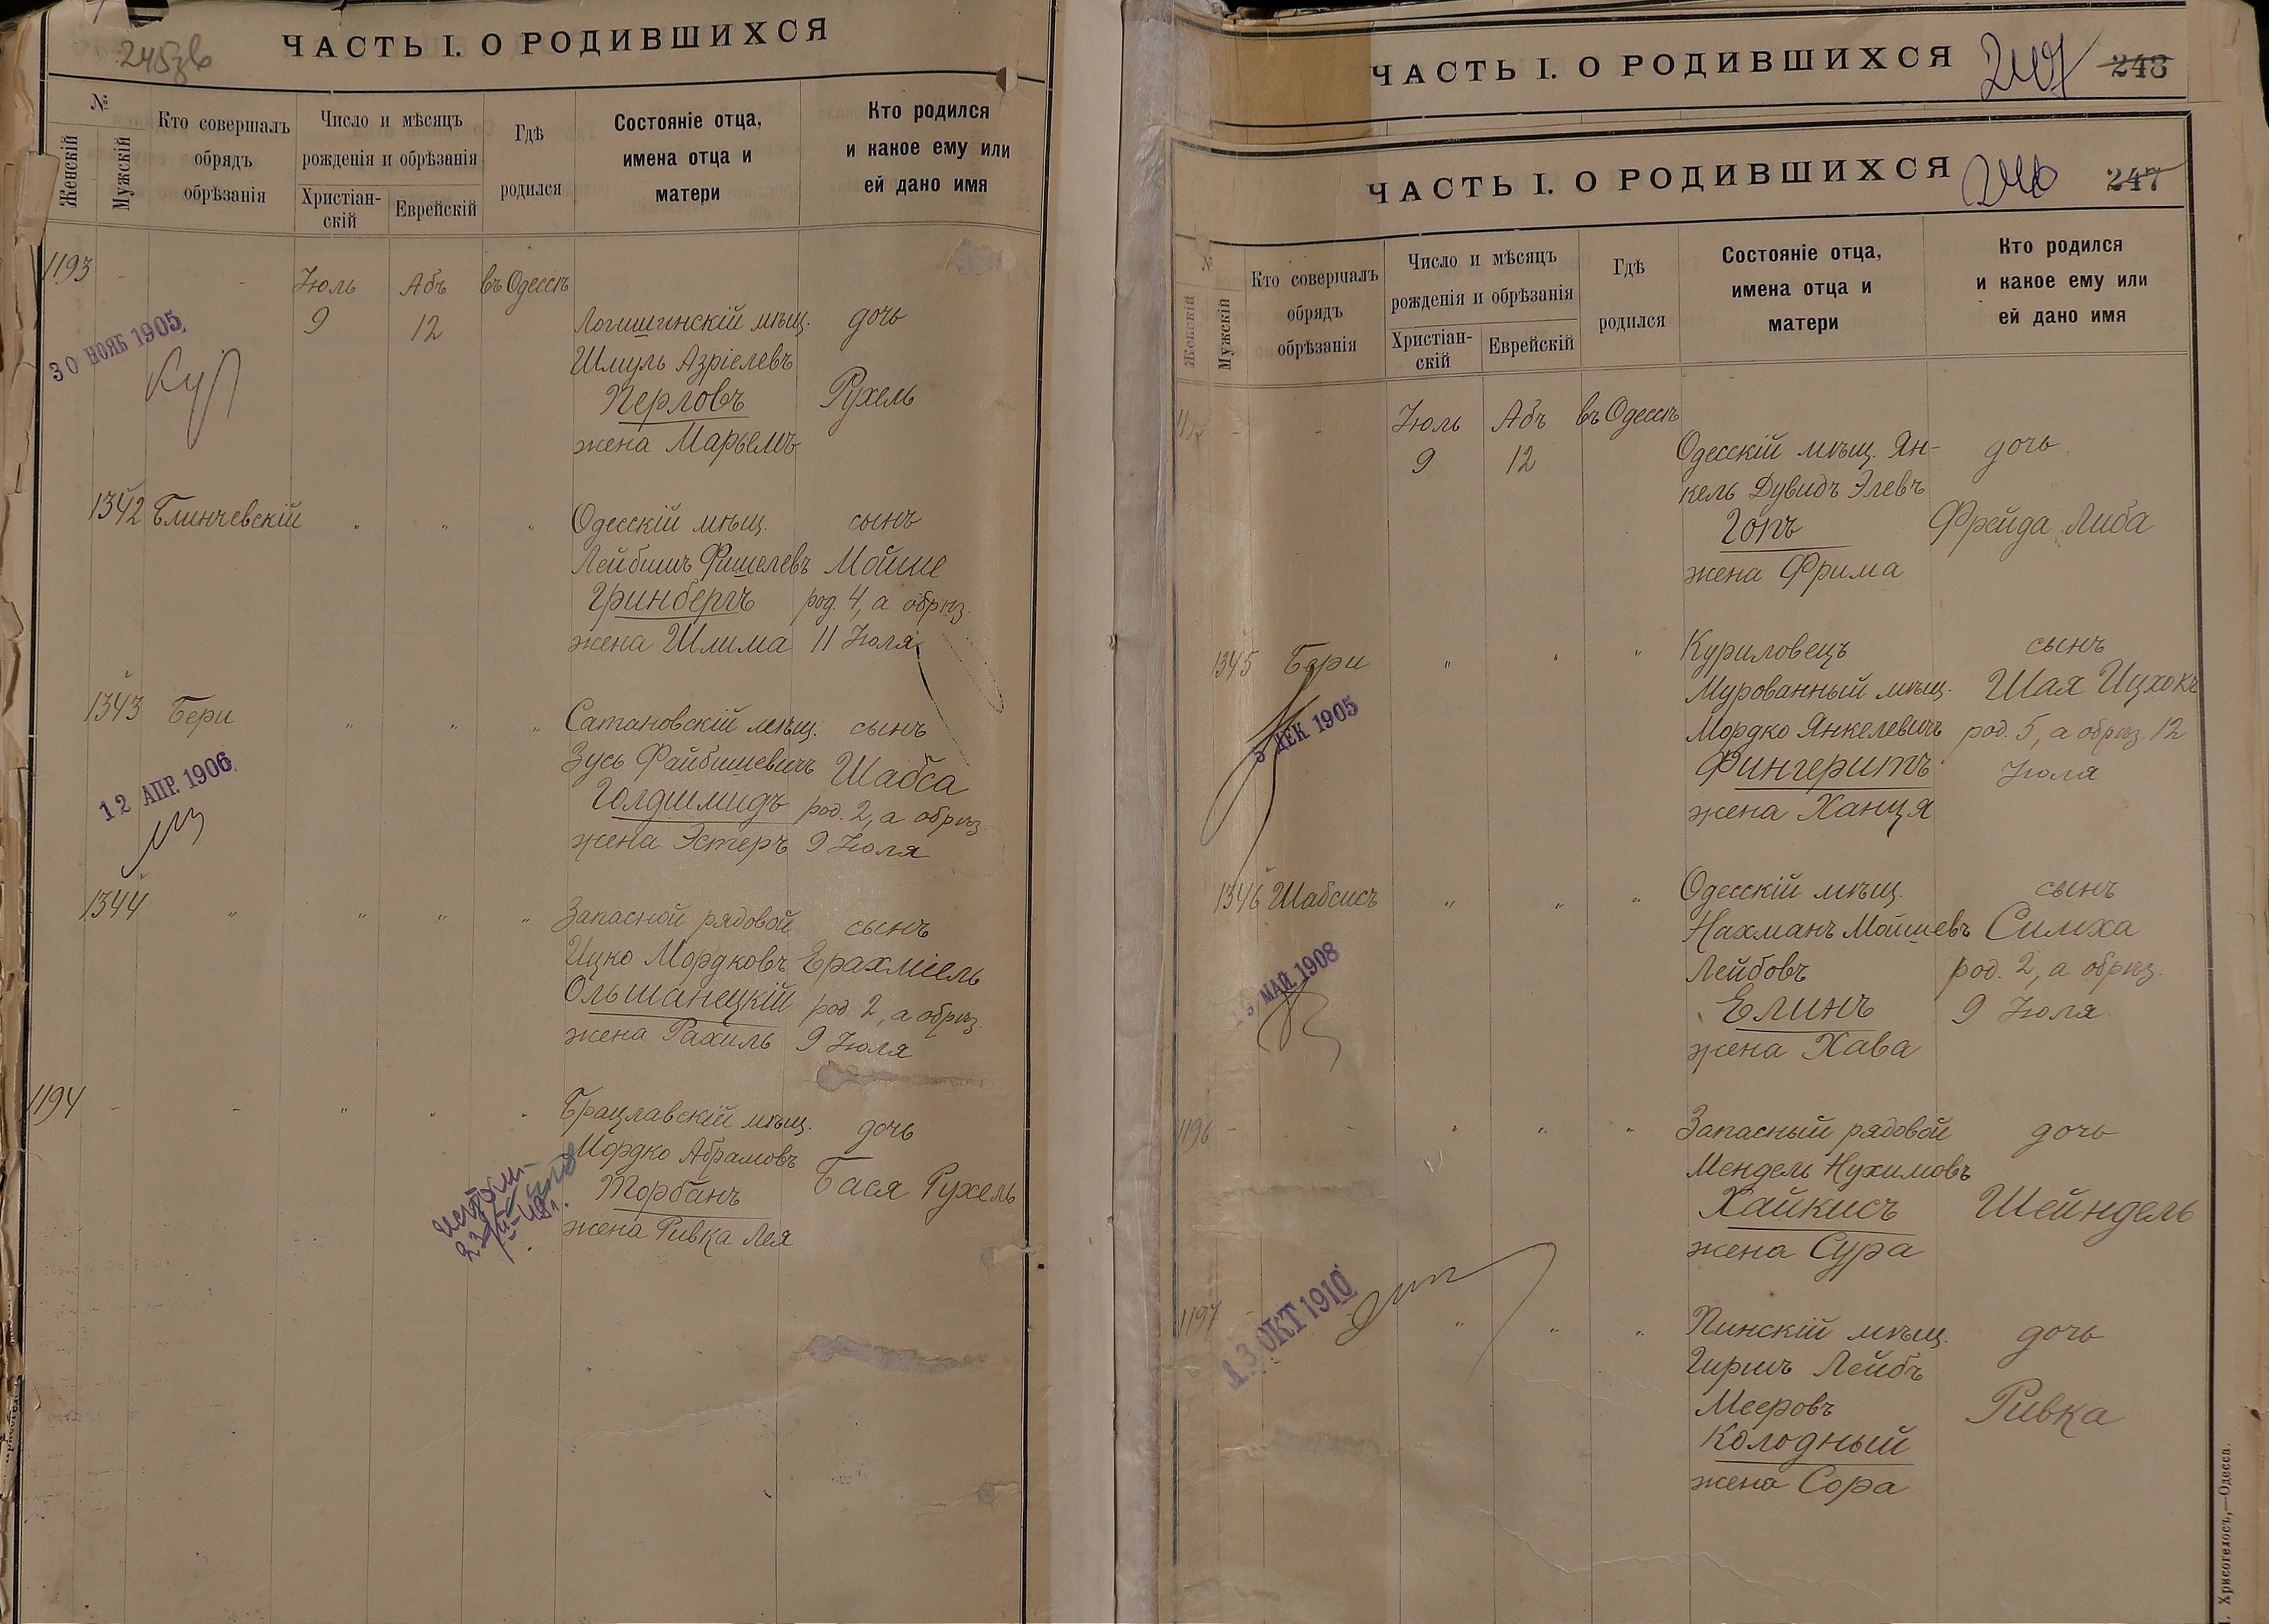 245 зв
ЧАСТЬ I. О РОДИВШИХСЯ
№
Женскій
Мужскій
Кто совершалъ
обрядъ
обрѣзанія
Число и мѣсяцъ
рожденія и обрѣзанія
Христіан-
скій
Еврейскій
Гдѣ
родился
Состояніе отца,
имена отца и
матери
Кто родился
и какое ему или
ей дано имя
1193 - - Іюль Абъ въ Одессѣ
9 12 Логишинскій мѣщ. дочь
30 НОЯБ 1905
Шмуль Азріелевъ
Перловъ Рухель
жена Марьемъ
1342 Блинчевскій " " " Одесскій мѣщ. сынъ
Лейбишъ Фишелевъ Мойше
Гринбергъ род. 4, а обрѣз.
жена Шлима 11 Іюля
1343 Бери " " " Сатановскій мѣщ. сынъ
12 АПР. 1906
Зусь Файбишевичъ Шабса
Голдшмидъ род. 2, а обрѣз.
жена Эстеръ 9 Іюля
1344 " " " " Запасной рядовой сынъ
Ицко Мордковъ Ерахміель
Ольшанецкій род. 2, а обрѣз.
жена Рахиль 9 Іюля
1194 - - " " " Брацлавскій мѣщ. дочь
Мордко Абрамовъ
Торбанъ Бася Рухель
жена Ривка Лея
ЧАСТЬ I. О РОДИВШИХСЯ 247 248
ЧАСТЬ I. О РОДИВШИХСЯ 246 247
№
Женскій
Мужскій
Кто совершалъ
обрядъ
обрѣзанія
Число и мѣсяцъ
рожденія и обрѣзанія
Христіан-
скій
Еврейскій
Гдѣ
родился
Состояніе отца,
имена отца и
матери
Кто родился
и какое ему или
ей дано имя
- - Іюль Абъ въ Одессѣ
9 12 Одесскій мѣщ. Ян- дочь
кель Дувидъ Элевъ
Гопъ Фрейда Либа
жена Фрима
1345 Бери " " " Куриловецъ сынъ
Мурованный мѣщ. Шая Ицхокъ
5 ДЕК 1905
Мордко Янкелевичъ род. 5, а обрѣз. 12
Фингеритъ Іюля
жена Ханця
1346 Шабсисъ " " " Одесскій мѣщ. сынъ
Нахманъ Мойшевъ Симха
МАЙ 1908
Лейбовъ род. 2, а обрѣз.
Елинъ 9 Іюля
жена Хава
1196 - - " " " Запасный рядовой дочь
Мендель Нухимовъ
Хайкисъ Шейндель
жена Сура
1197 - " " " Пинскій мѣщ. дочь
13 ОКТ 1910
Гиршъ Лейбъ
Мееровъ Ривка
Колодный
жена Сора
Хрисогелосъ,—Одесса.